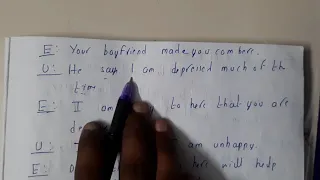 E: Your boyfriend made you com here.
U: He says I am depressed much of the
time
E: I am to here that you are
de
U: I am unhappy.
E: D here will help